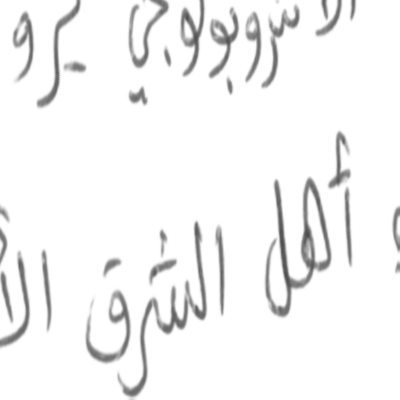 الأنثروبولوجي يرو
أهل الشرق الأ